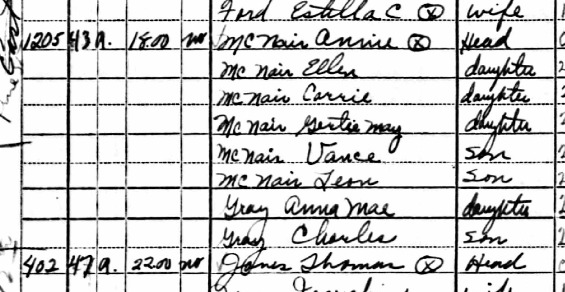 Ford Estella C ⓧ wife
1205 43 R. 18.00 no McNair Annie ⓧ Head
McNair Ellen daughter
McNair Carrie daughter
McNair Gertie May daughter
McNair Vance son
McNair Leon son
Gray Anna Mae daughter
Gray Charles son
402 47 R. 22.00 no Jones Thomas ⓧ Head